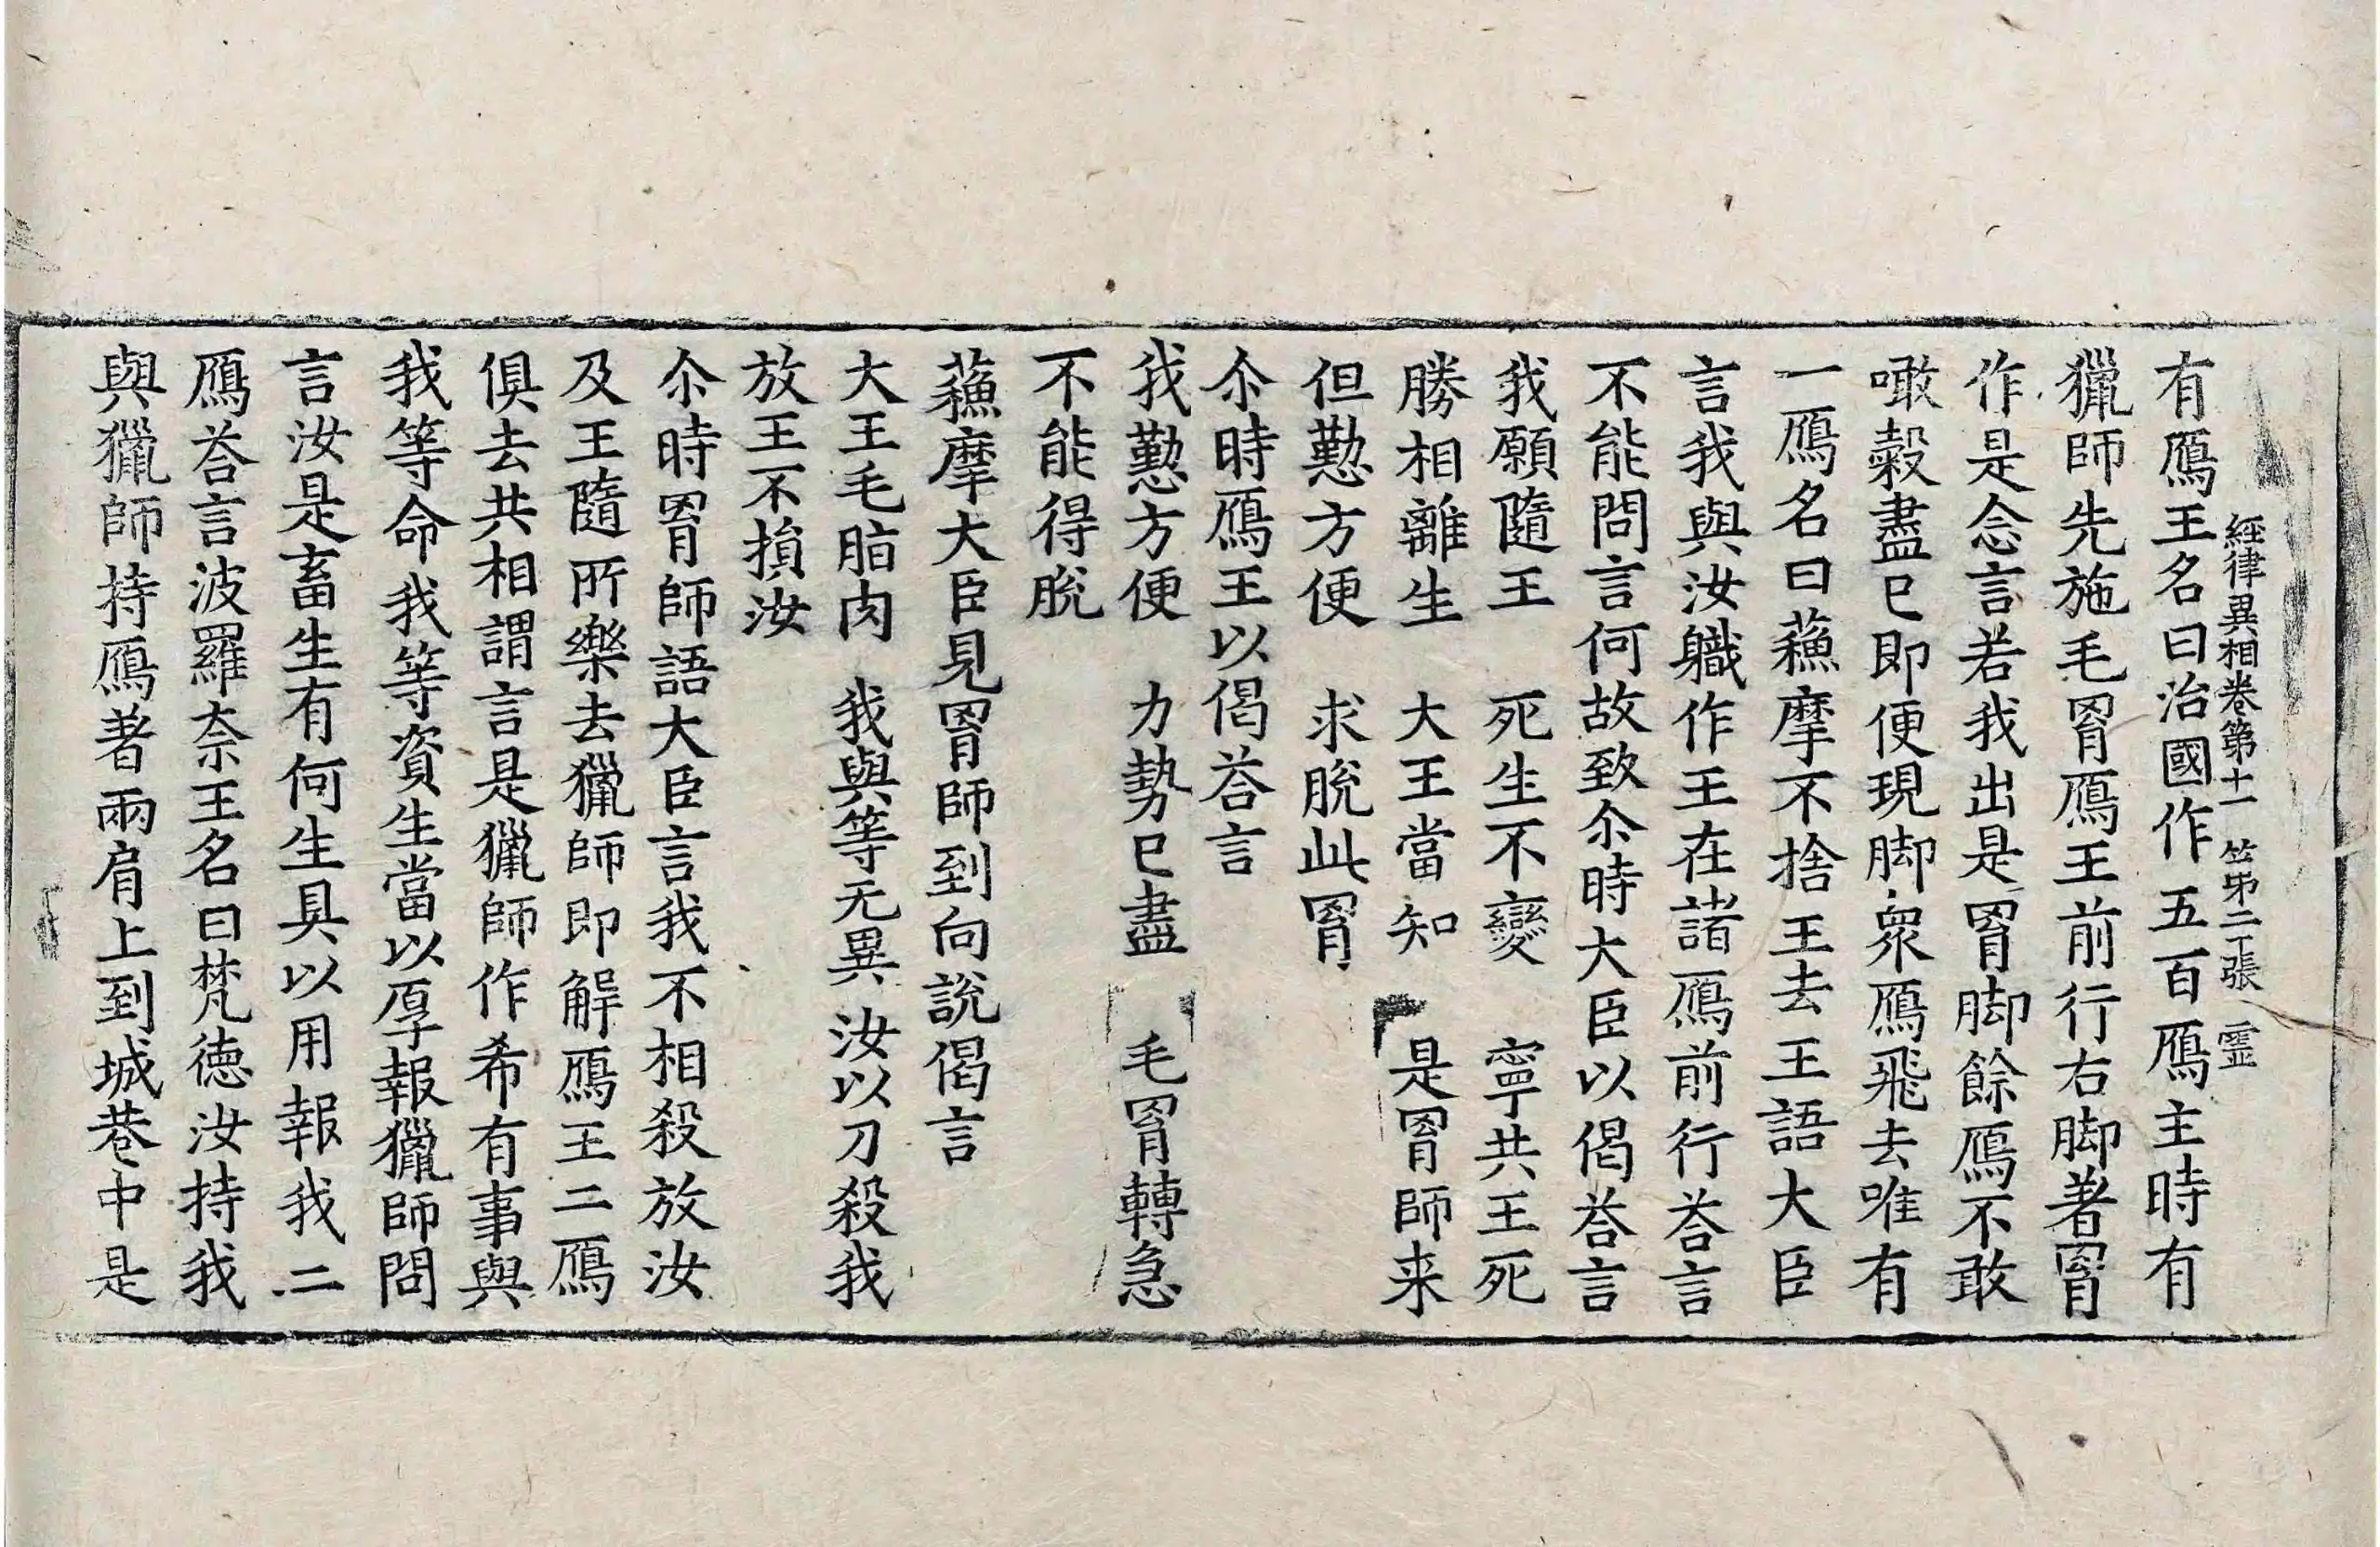 經律異相卷第十一　第二十張　霊
有鴈王名曰治國作五百鴈主時有
獵師先施毛罥鴈王前行右脚著罥
作是念言若我出是罥脚餘鴈不敢
噉糓盡已即便現脚衆鴈飛去唯有
一鴈名曰蘓摩不捨王去王語大臣
言我與汝軄作王在諸鴈前行荅言
不能問言何故致尒時大臣以偈荅言
我願隨王　死生不變　寧共王死
勝相離生　大王當知　是罥師来
但懃方便　求脫此罥
尒時鴈王以偈荅言
我懃方便　力勢已盡　毛罥轉急
不能得脫
蘓摩大臣見罥師到向說偈言
大王毛脂肉　我與等无異　汝以刀殺我
放王不損汝
尒時罥師語大臣言我不相殺放汝
及王隨所樂去獵師即解鴈王二鴈
俱去共相謂言是獵師作希有事與
我等命我等資生當以厚報獵師問
言汝是畜生有何生具以用報我二
鴈荅言波羅奈王名曰梵德汝持我
與獵師持鴈著兩肩上到城巷中是